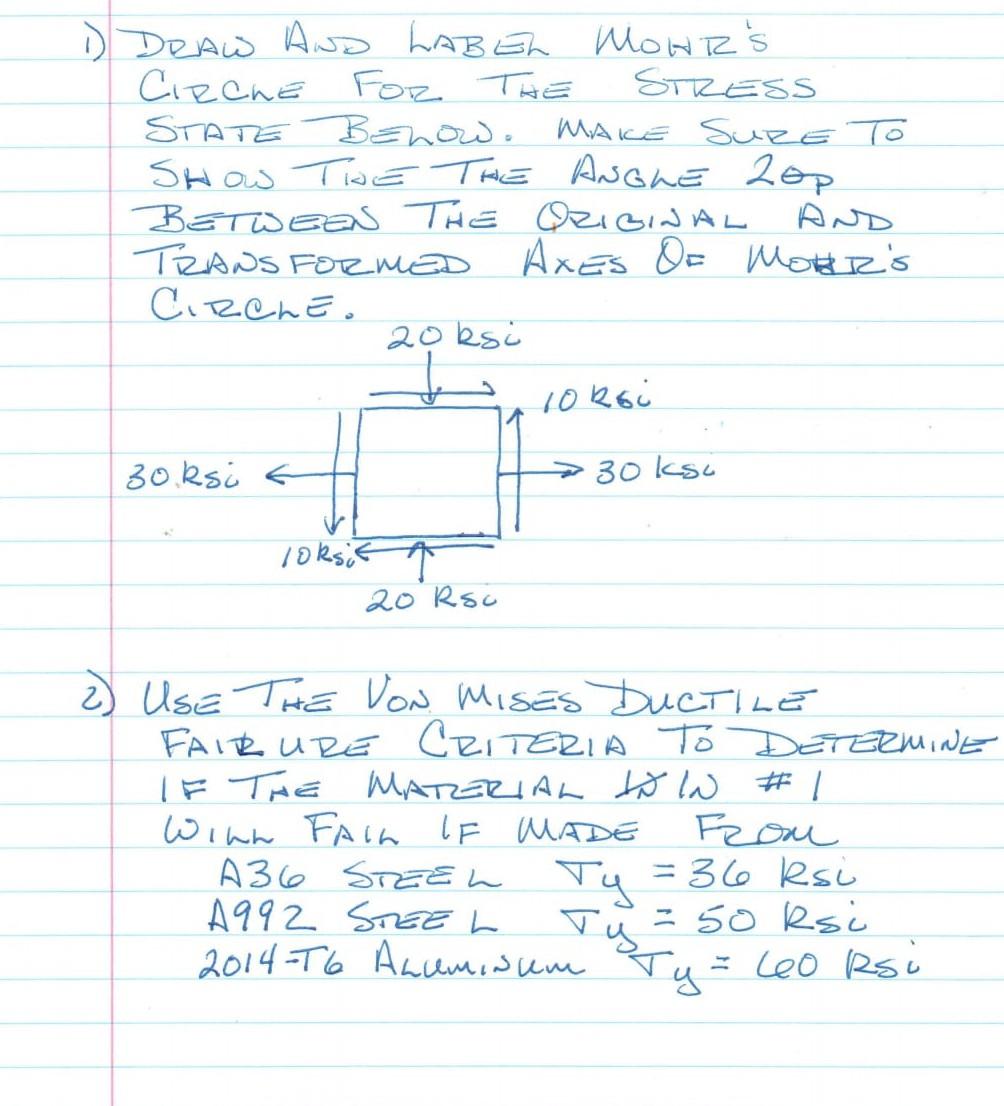 1) DRAW AND LABEL MOHR'S
CIRCLE FOR THE STRESS
STATE BELOW. MAKE SURE TO
SHOW THE THE ANGLE 2θp
BETWEEN THE ORIGINAL AND
TRANSFORMED AXES OF MOHR'S
CIRCLE.
20 ksi
10 ksi
30 ksi
30 ksi
10 ksi
20 ksi
2) USE THE VON MISES DUCTILE
FAIRURE CRITERIA TO DETERMINE
IF THE MATERIAL IN #1
WILL FAIL IF MADE FROM
A36 STEEL σy = 36 ksi
A992 STEEL σy = 50 ksi
2014-T6 ALUMINUM σy = 60 ksi